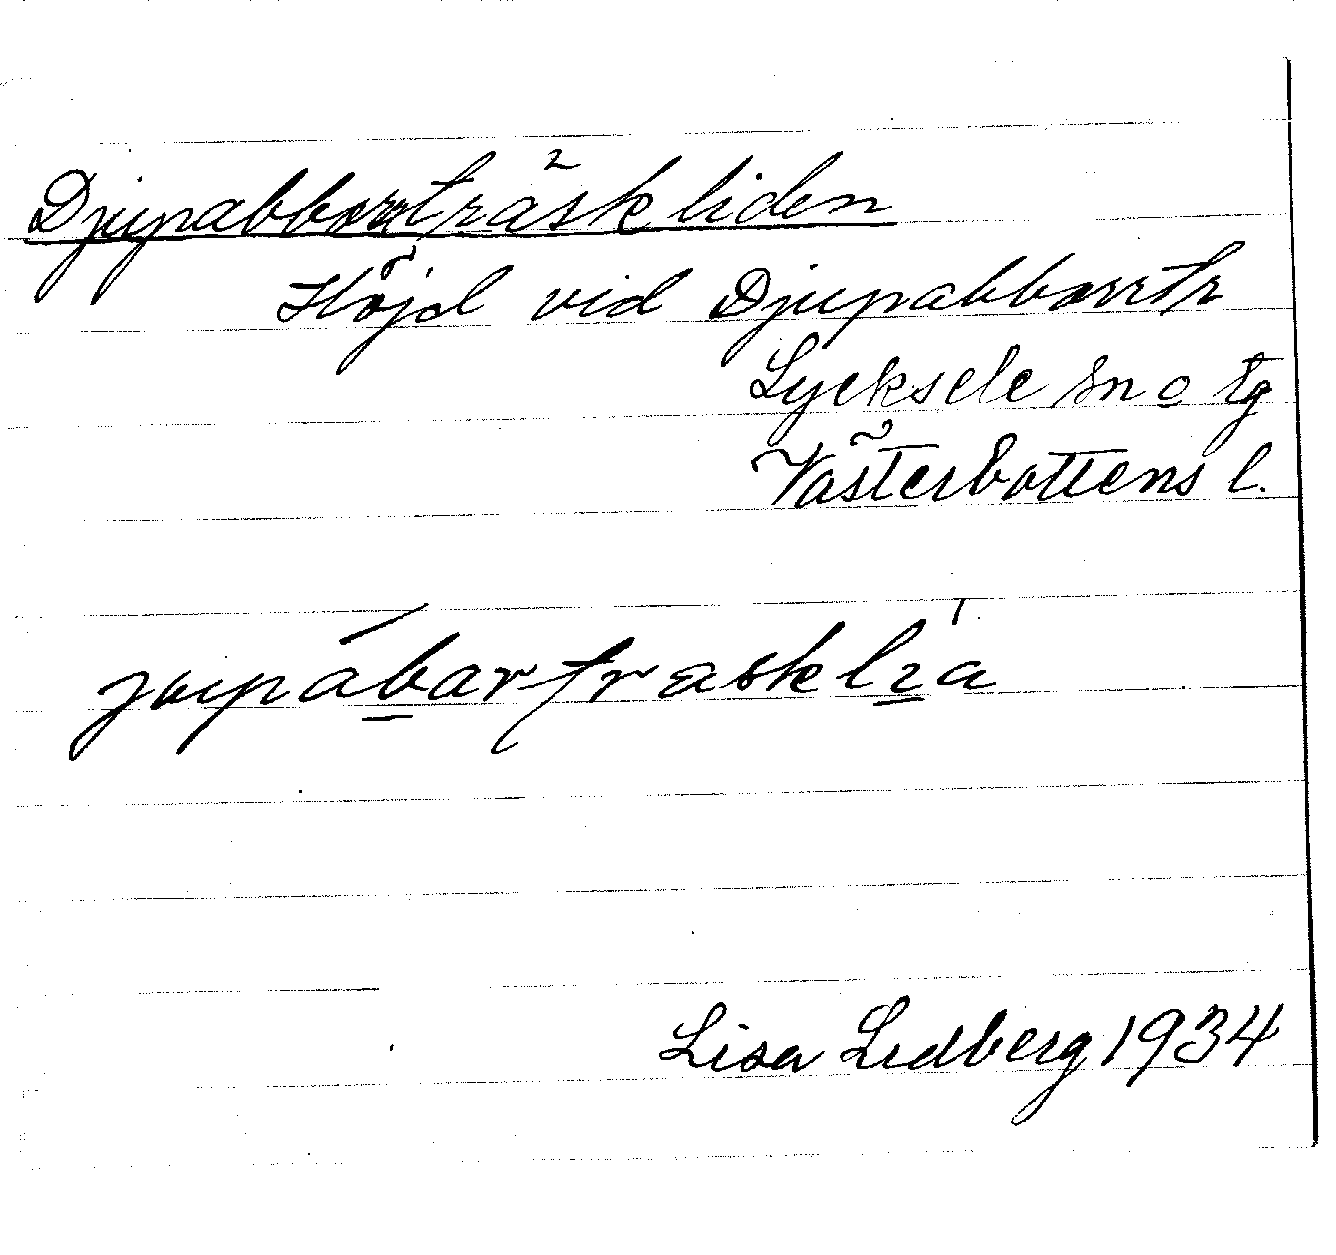 Djupabborrträskliden
Höjd vid Djupabborrtr
Lycksele sn o tg
Västerbottens l.
Lisa Lidberg 1934